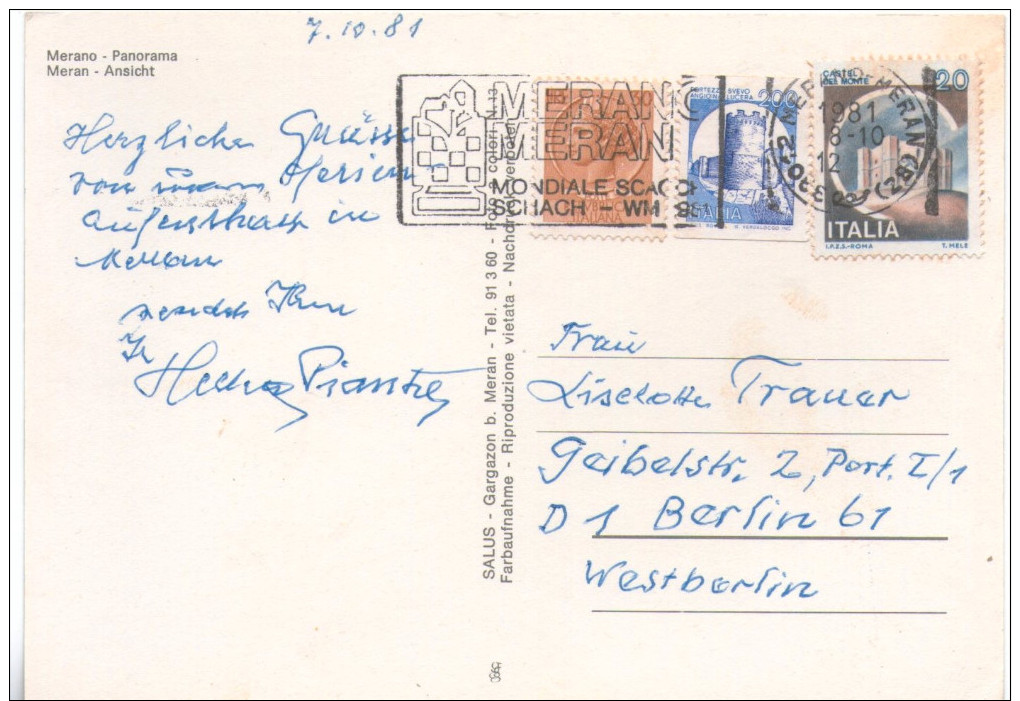 7.10.81
Merano - Panorama
Meran - Ansicht
Herzliche Grüsse
von
Aufenthalt in
Meran
sendet Ihnen
Ihr
MERANO
MERAN
MONDIALE SCACCHI
SCHACH - WM 1981
50
ITALIANA
FORTEZZA SVEVO
200
ITALIA
CASTEL
DEL MONTE
20
ITALIA
I.P.Z.S.-ROMA
T. MELE
MERANO - MERAN
1981
8-10
12
39012
(28)
SALUS - Gargazon b. Meran - Tel. 91 3 60 - Foto a colori N. 13
Farbaufnahme - Riproduzione vietata - Nachdruck verboten
Frau
Liselotte Trauer
Geibelstr. 2, Port. I/1
D 1 Berlin 61
Westberlin